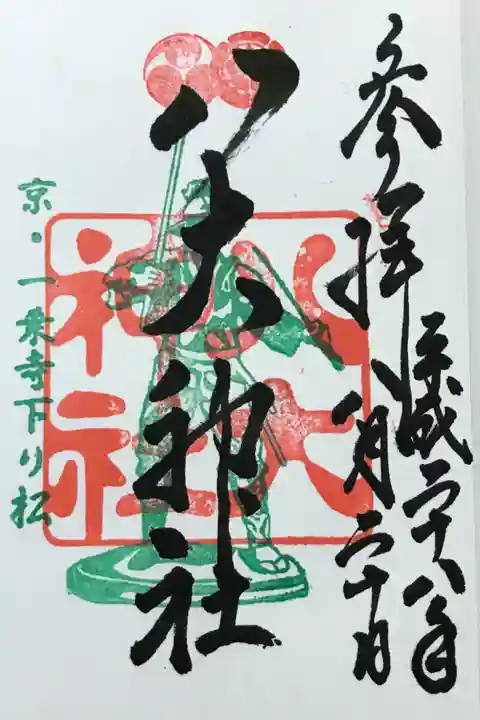 参拝 八月二十日
平成二十八年
八大神社
八大
神社
京・一乗寺下り松